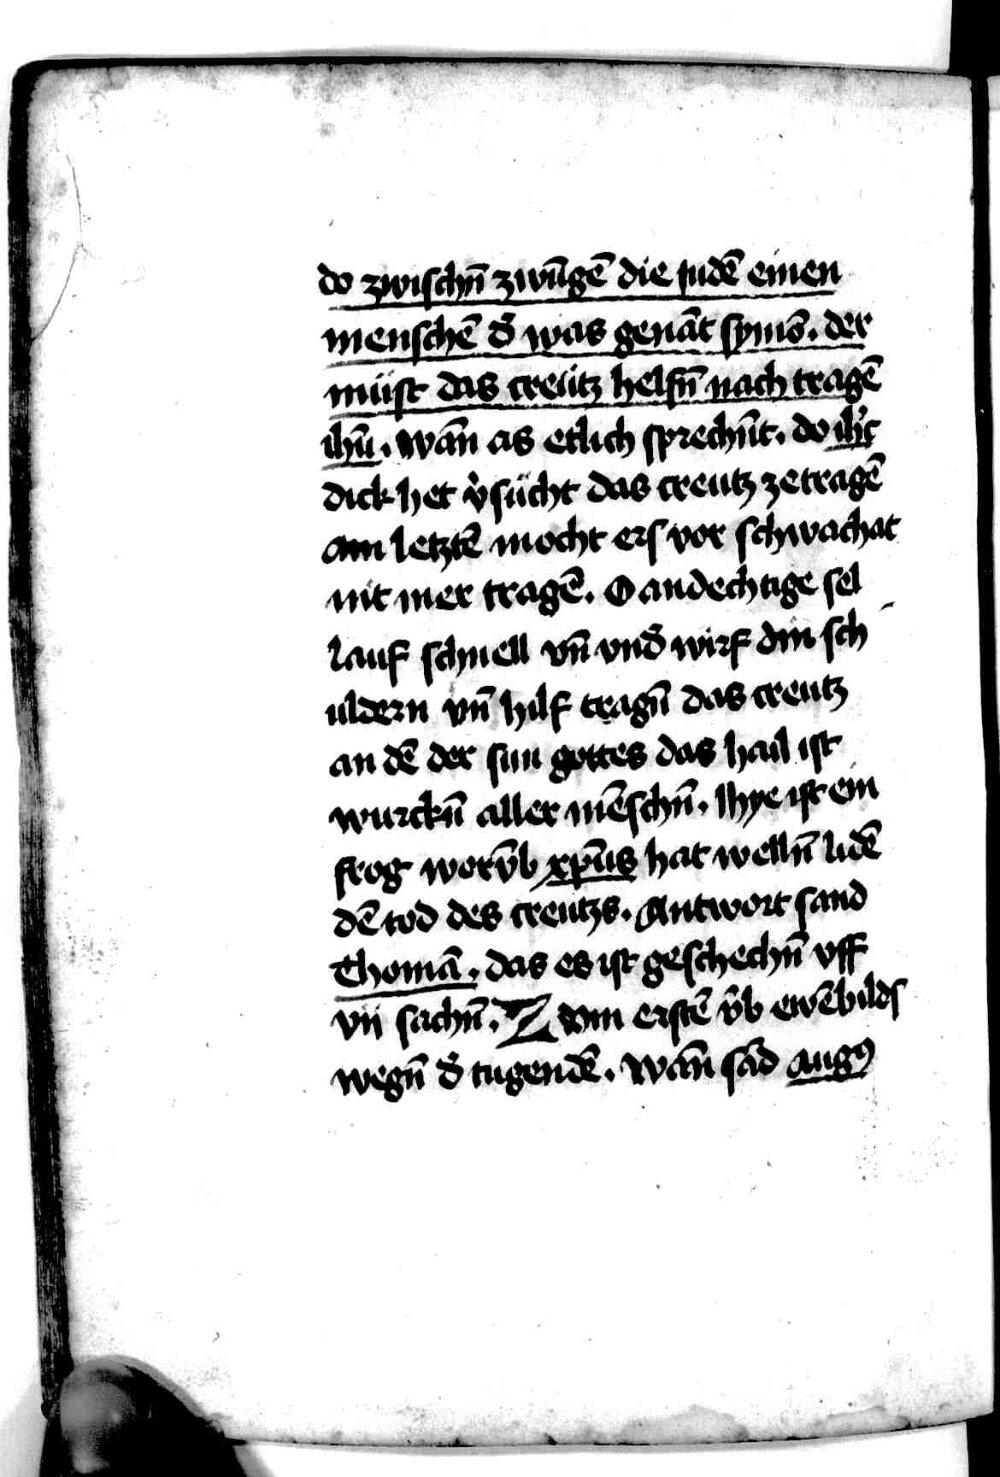 do zwischn̄ zwūgē die judē einen
menschē d̕ was genāt symō. der
müst das creütz helfn̄ nach tragē
ihū. wān as etlich sprechn̄t. do ih̄c
dick het v̕sücht das creutz zetragē
am letztē mocht ers vor schwachat
nit mer tragē. O andechtige sel
lauf schnell vn̄ vnd̕ wirf din sch
uldern vn̄ hilf tragn̄ das creutz
an dē der sun gottes das hail ist
wurckn̄ aller mēschn̄. Ihye ist ein
frog worv̄b xp̄us hat welln̄ lidē
dē tod des creützs. Antwort sand
Thomā. das es ist geschechn̄ vff
vii sachn̄. Zvom erstē v̄b ewēbilds
wegn̄ d̕ tugendē. wān sād augꝰ